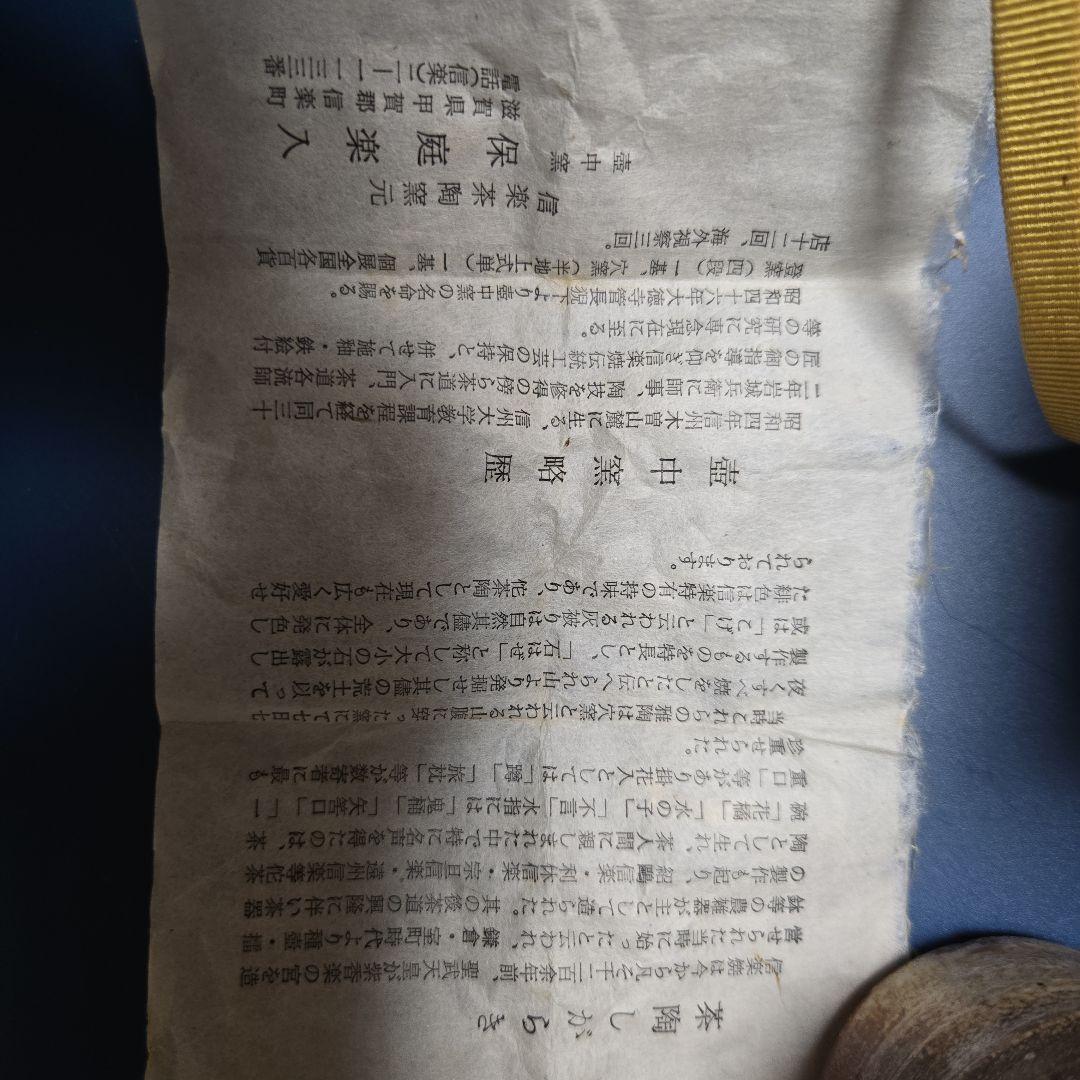 茶陶しがらき
信楽焼は今から見んと千二百余年前、聖武天皇が紫香楽の宮を造
営せられた当時に始ったと云われ、鎌倉・室町時代より種壺・擂
鉢等の農雑器が主として造られた。其の後茶道の風隆に伴い茶器
の製作も起り、紹鷗信楽・利休信楽・宗旦信楽・遠州信楽等佗茶
陶として生れ、茶人間に親しまれた中で特に名声を得たのは、茶
碗「花橘」「水の子」「不言」水指には「鬼桶」「矢筈口」「一
重口」等があり掛花入としては「蹲」「旅枕」等が数寄者に最も
珍重せられた。
当時これらの雅陶は穴窯と云われる山腹に穿った窯にて七日七
夜くすべ焼をしたと伝へられ山より発掘せし其儘の荒土を以って
製作するものを特長とし、「石はぜ」と称して大小の石が露出し
或は「こげ」と云われる灰被りは自然其儘であり、全体に発色し
た緋色は信楽特有の持味であり、佗茶陶として現在も広く愛好せ
られております。
壺中窯略歴
昭和四年信州木曽山麓に生る、信州大学教育課程を経て同三十
二年岩城兵衛に師事、陶技を修得の傍ら茶道に入門、茶道各流師
匠の御指導を仰ぎ信楽焼伝統工芸の保持と、併せて施釉・鉄絵付
等の研究に専念現在に至る。
昭和四十六年大徳寺管長猊下より壺中窯の名命を賜る。
登窯(四段)一基、穴窯(半地上式単)一基、個展全国各百貨
店十二回、海外視察三回。
信楽茶陶窯元
壺中窯 保庭楽入
滋賀県甲賀郡信楽町
電話(信楽)二-一一三三番